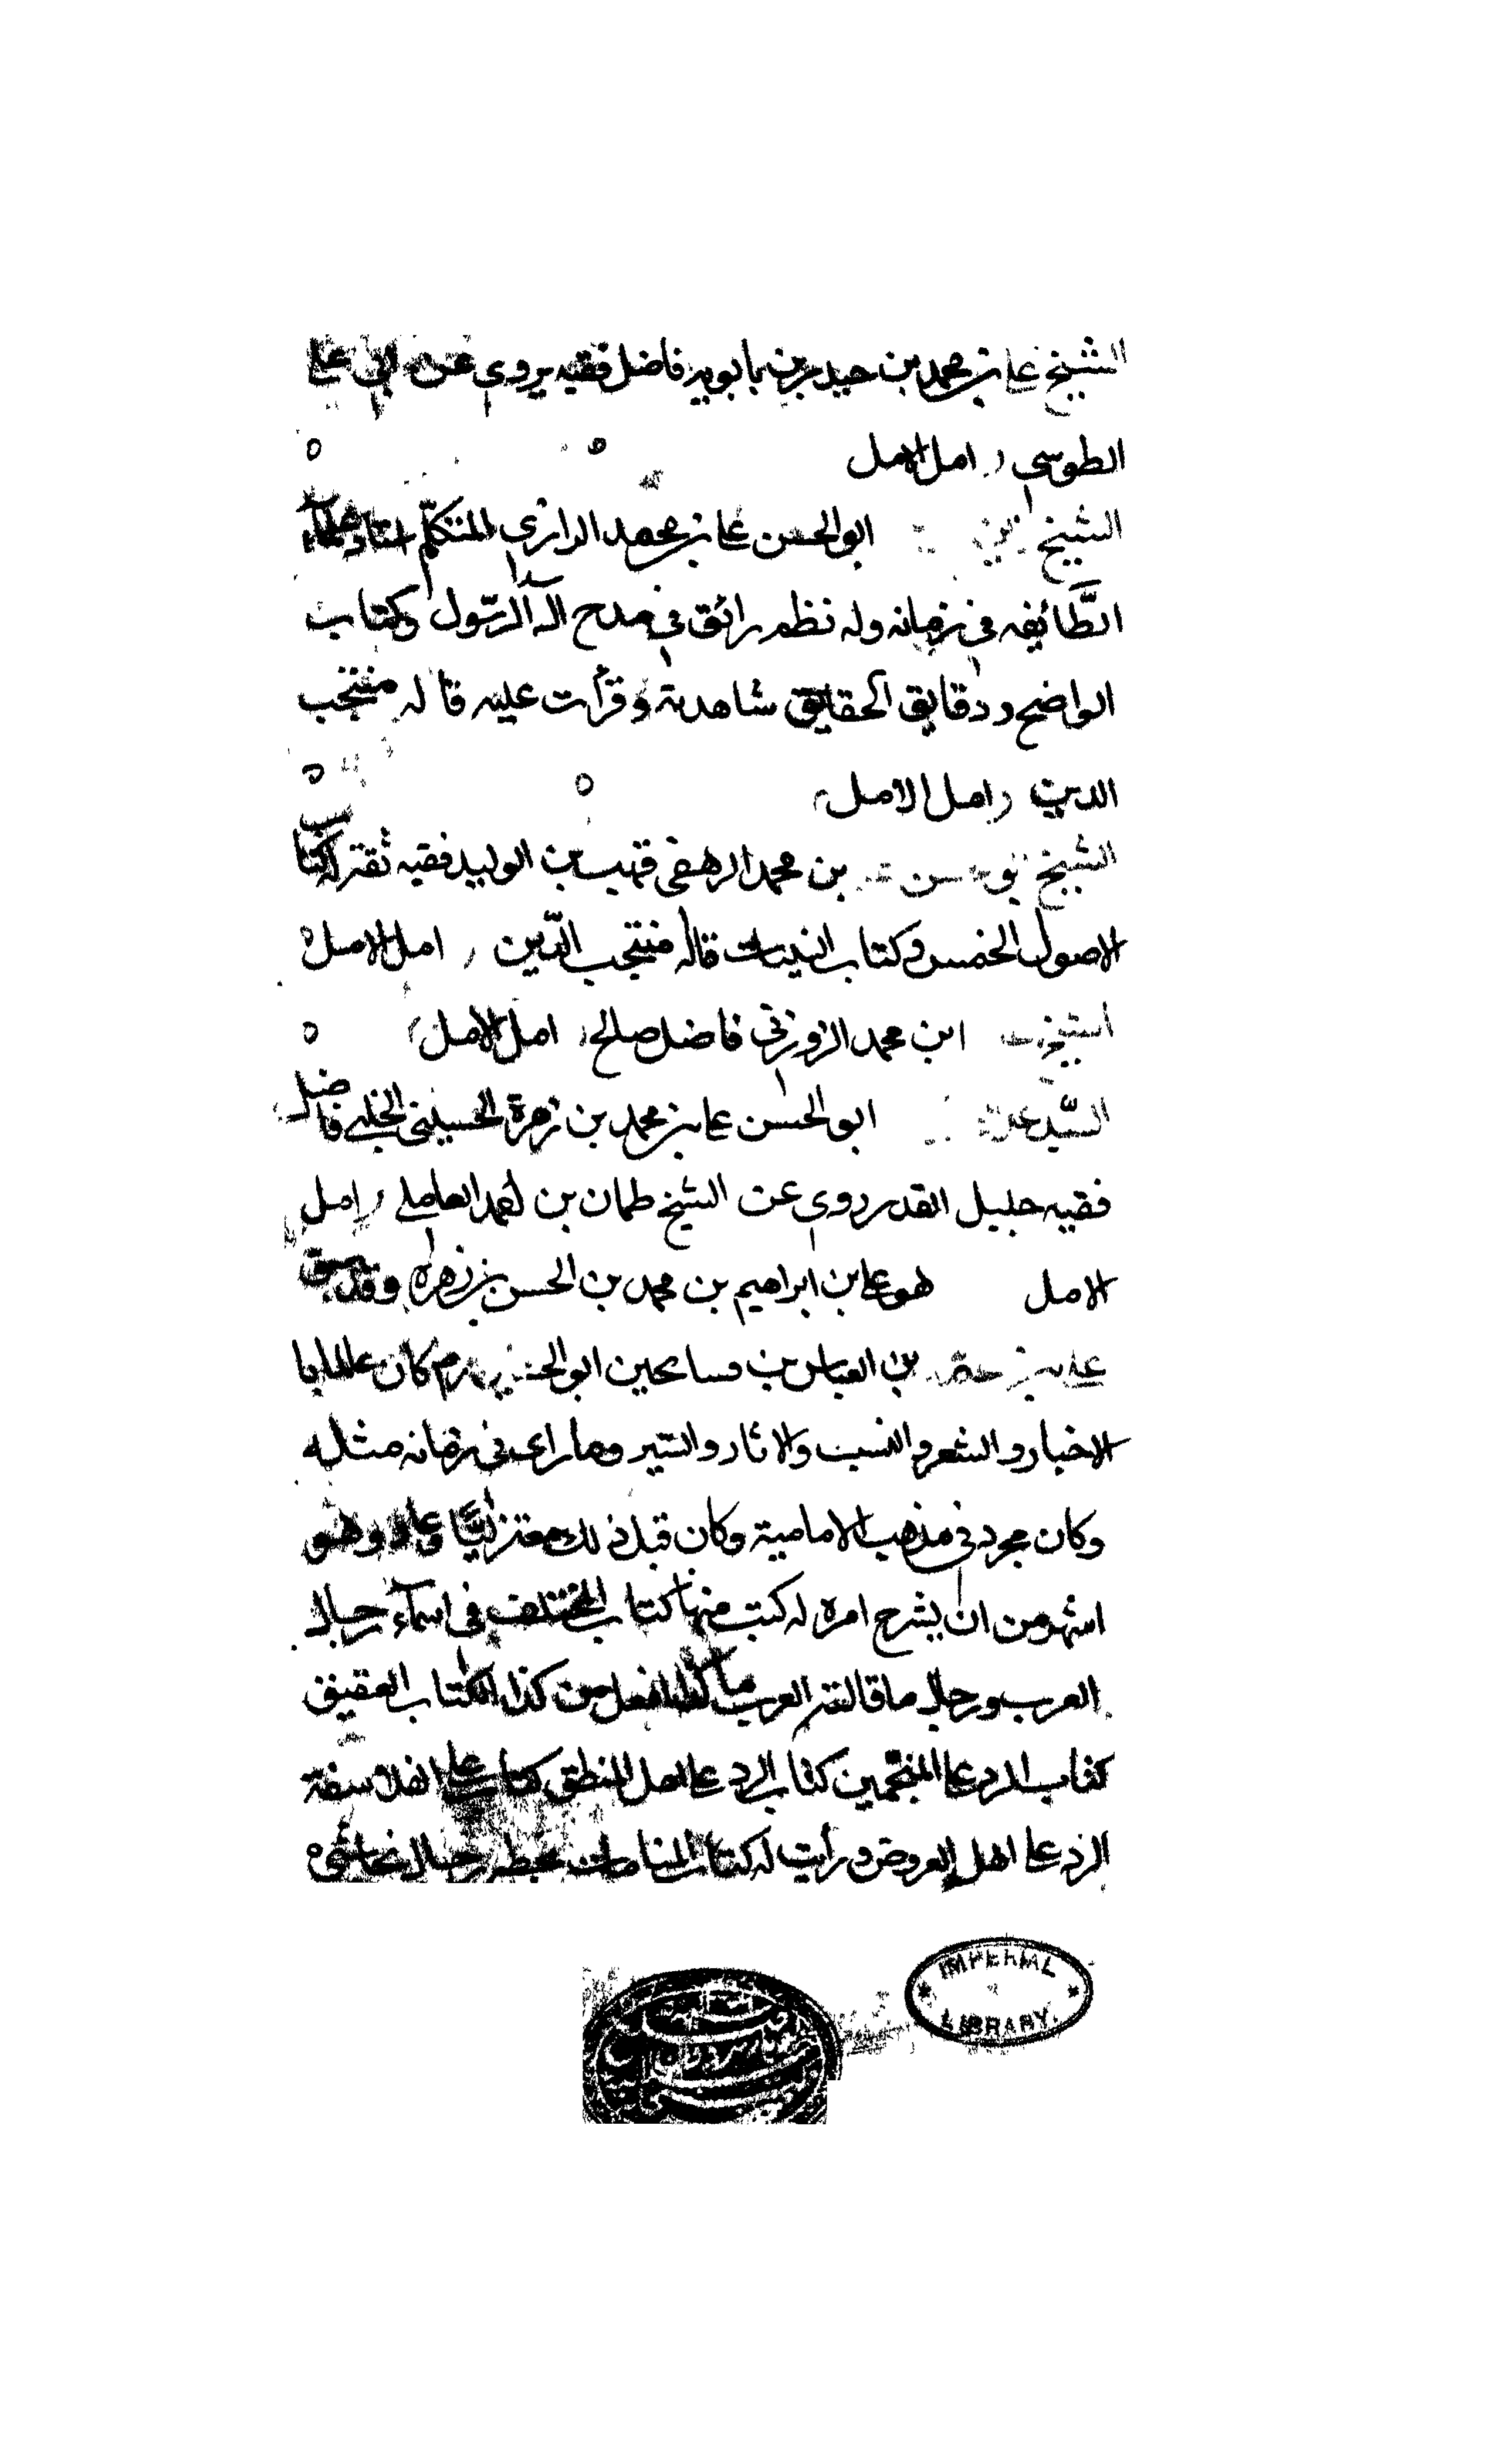 الشيخ على بن محمد بن حيدر بن بابويه فاضل فقيه يروى عن ابى على
الطوسى امل الامل
الشيخ ابو الحسن على بن محمد الرازى المتكلم استاد علماء
الطَّائفه فى زمانه وله نظم رائق فى مدح آل الرّسول وكتاب
الواضح ودقايق الحقايق شاهدته وقرأت عليه قاله منتجب
الدين امل الامل
الشيخ بن محمد الرهقى بن الوليد فقيه ثقة له كتاب
الاصول الخمس وكتاب النيات قاله منتجب الدّين امل الامل
ابن محمد الزوزنى فاضل صالح امل الامل
السّيد ابو الحسن على بن محمد بن زهرة الحسينى الحلبى فاضل
فقيه جليل القدر روى عن الشيخ طمان بن احمد العاملى امل
الامل هو على بن ابراهيم بن محمد بن الحسن بن زهره وقد سبق
على بن محمد بن العباس بن فسانجس ابو الحسن ره كان عالما با
الاخبار والشعر والنسب والاثار والسّير وما راى فى زمانه مثله
وكان مجرد فى مذهب الامامية وكان قبل ذلك معتزليّا وعاد وهو
اشهر من ان يشرح امره له كتب منها كتاب المختلف فى اسمآء رجال
العرب ورجال ما قالته العرب ما كذا افعل من كذا الكتاب العقيق
كتاب الرد على المنجّمين كتاب الرد على اهل المنطق كتاب على الفلاسفة
الرد على اهل العروض ورأيت له كتاب المنامات بخطه رجال نجاشى
IMPERIAL
LIBRARY.